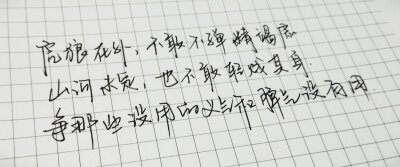 虎狼在外，不敢不殚精竭虑
山河未定，也不敢轻贱其身.
争那些没用的义气和脾气没有用